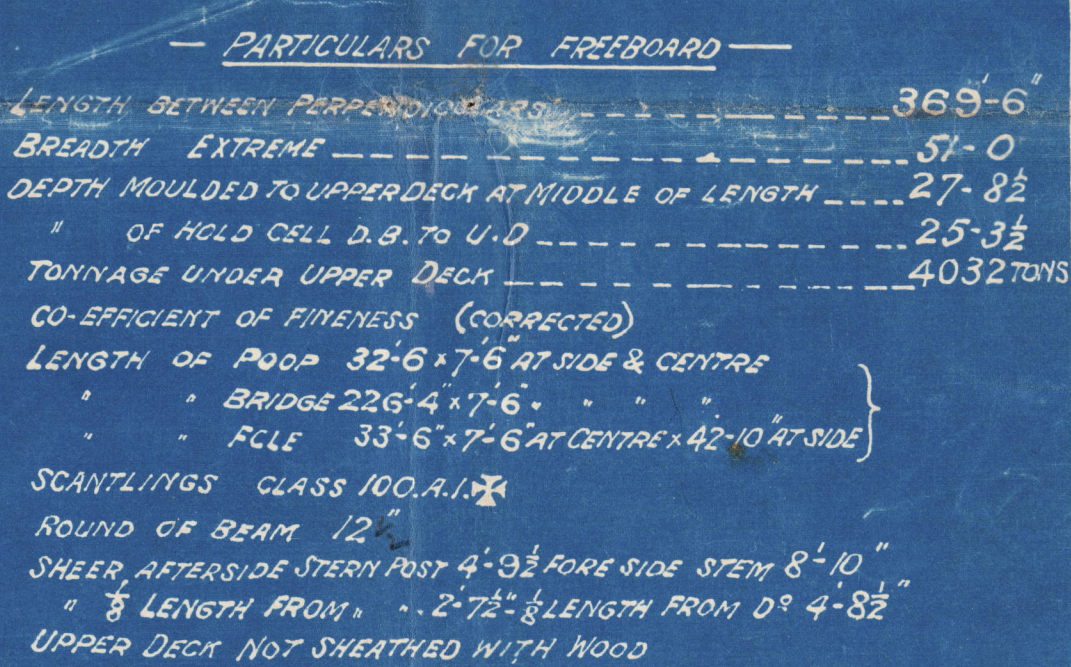 — PARTICULARS FOR FREEBOARD —
LENGTH BETWEEN PERPENDICULARS - - - - - - - - - 369'-6"
BREADTH EXTREME - - - - - - - - - - - - - - - - 51-0
DEPTH MOULDED TO UPPER DECK AT MIDDLE OF LENGTH - - - - 27-8½
" OF HOLD CELL D.B. TO U.D - - - - - - - - - - - - 25-3½
TONNAGE UNDER UPPER DECK - - - - - - - - - - - - - 4032 TONS
CO-EFFICIENT OF FINENESS (CORRECTED)
LENGTH OF POOP 32'-6 × 7'-6" AT SIDE & CENTRE
" " BRIDGE 226'-4" × 7'-6" " " " "
" " FCLE 33'-6" × 7'-6" AT CENTRE × 42-10" AT SIDE
SCANTLINGS CLASS 100.A.1.✠
ROUND OF BEAM 12 ½"
SHEER, AFTERSIDE STERN POST 4'-9½ FORE SIDE STEM 8'-10"
" ⅛ LENGTH FROM " " 2'-7½"-⅛ LENGTH FROM Dº 4'-8½"
UPPER DECK NOT SHEATHED WITH WOOD